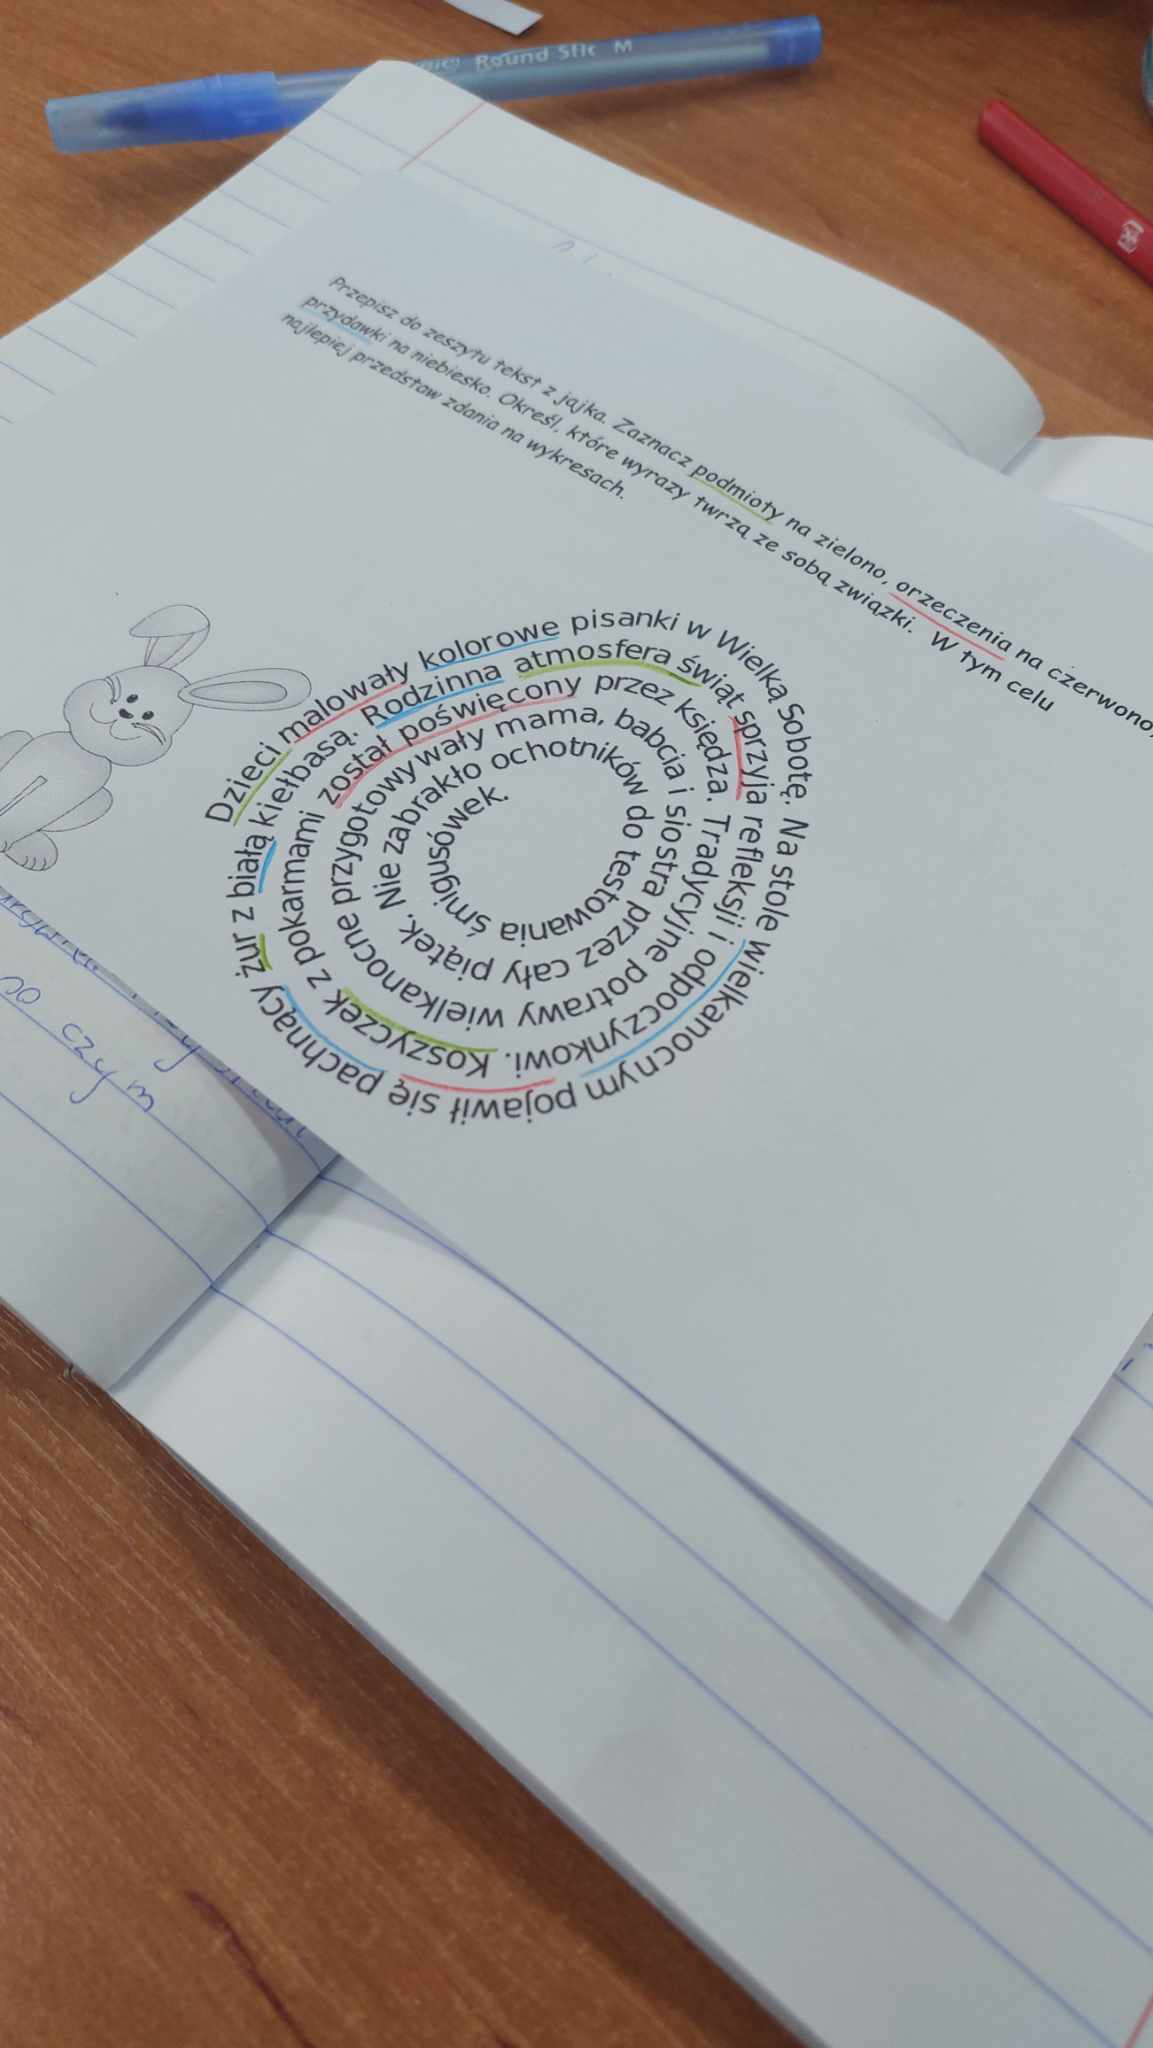 Round Stic M
Przepisz do zeszytu tekst z jajka. Zaznacz podmioty na zielono, orzeczenia na czerwono,
przydawki na niebiesko. Określ, które wyrazy twrzą ze sobą związki. W tym celu
najlepiej przedstaw zdania na wykresach.
Dzieci malowały kolorowe pisanki w Wielką Sobotę. Na stole wielkanocnym pojawił się pachnący żur z białą kiełbasą. Rodzinna atmosfera świąt sprzyja refleksji i odpoczynkowi. Koszyczek z pokarmami został poświęcony przez księdza. Tradycyjne potrawy wielkanocne przygotowywały mama, babcia i siostra przez cały piątek. Nie zabrakło ochotników do testowania śmigusówek.
czym